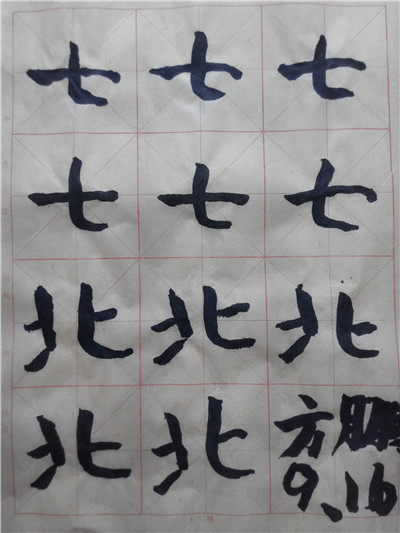 七七七
七七七
北北北
北北方
9、16